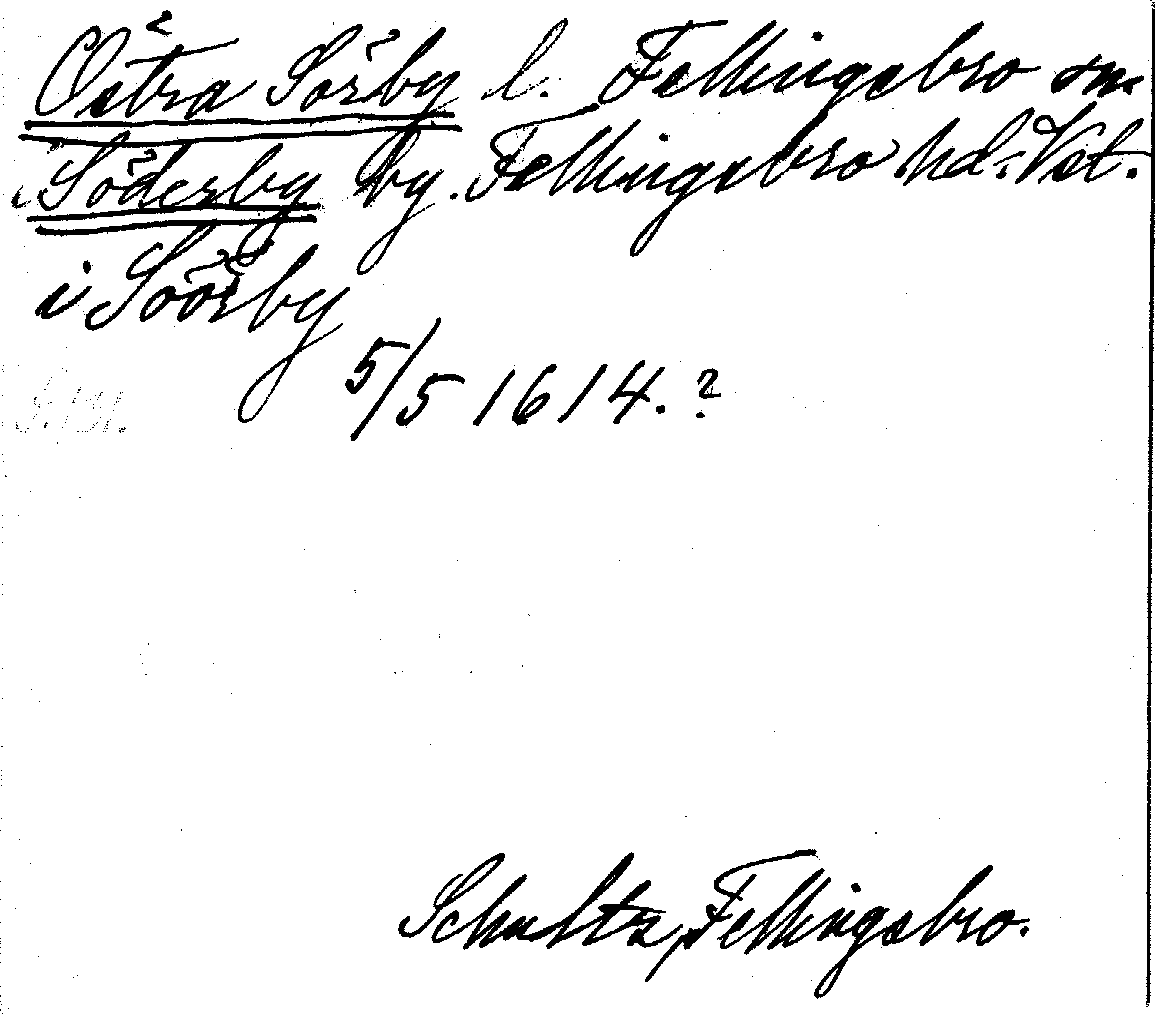 Östra Sörby l. Fellingsbro sn.
i Söderby by. Fellingsbro hd. Vst.
i Söörby
5/5 1614.?
Schultz, Fellingsbro.